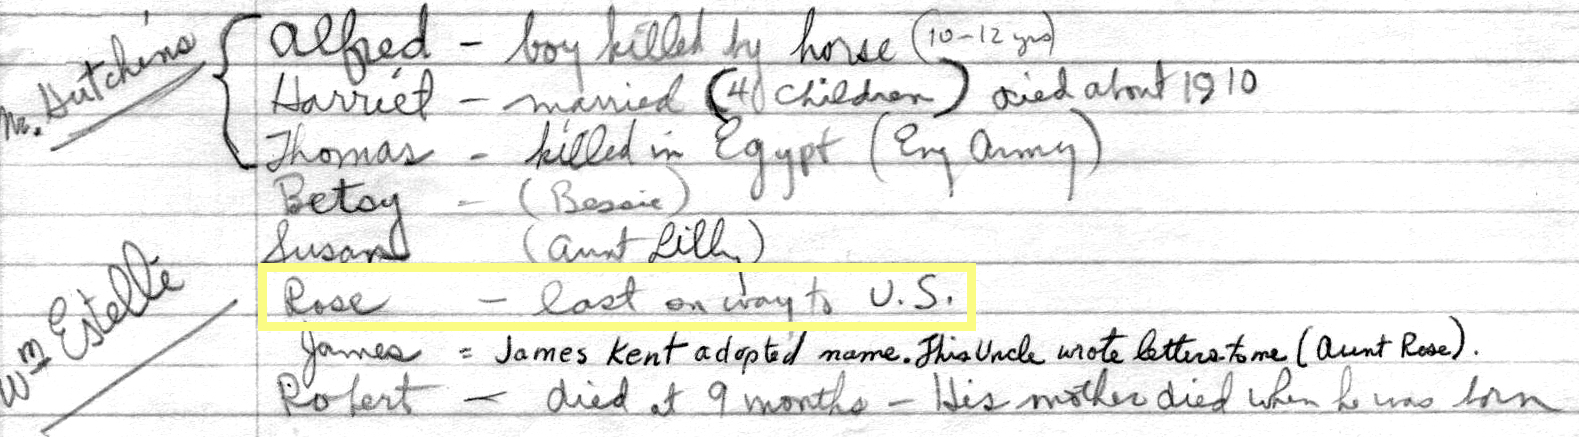 Mr. Hutchins
Alfred - boy killed by horse (10-12 yrs)
Harriet - married (4 children) died about 1910
Thomas - killed in Egypt (Eng Army)
Betsy - (Bessie)
Susan (Aunt Lilly)
Wm Estelle
Rose - last on way to U.S.
James = James Kent adopted name. This Uncle wrote letters to me (Aunt Rose).
Robert - died at 9 months - His mother died when he was born